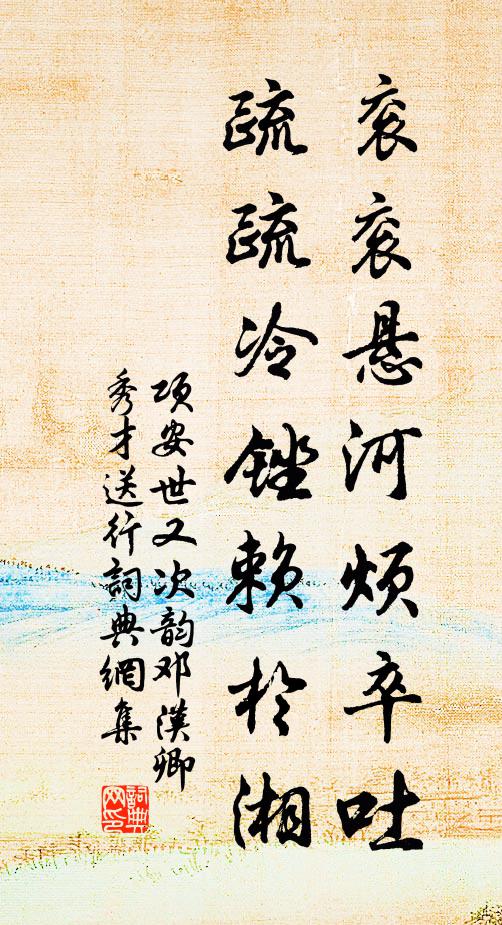 衮衮悬河烦卒吐
疏疏冷锉赖於湘
项安世又次韵邓漢卿
秀才送行詞典網集
詞典
网印